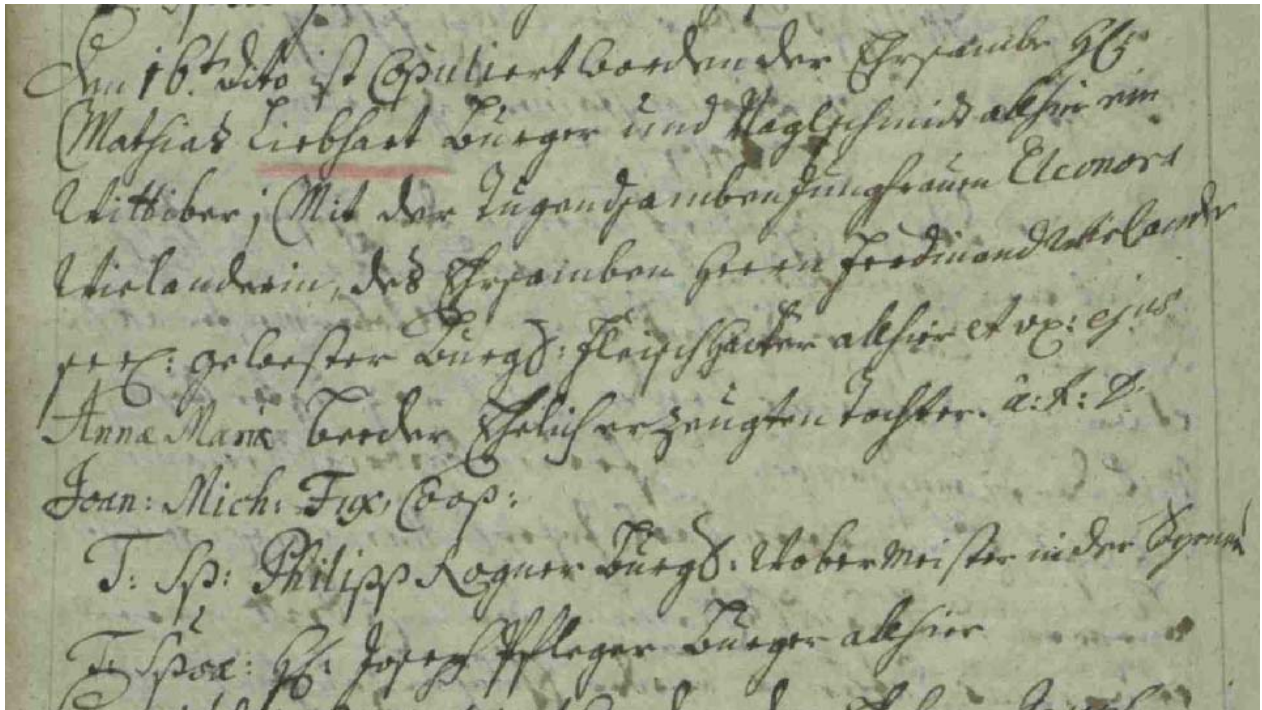 Den 16.t dito ist Copuliert worden der Ehrsambe H:
Mathias Liebhart Burger und Naglschmidt allhier ein
Wittiber; Mit der Tugendsamben Jungfrauen Eleonora
Wielanderin, des Ehrsamben Herrn Ferdinand Wielander
seel: gewester Burgl: Fleischhacker allhier et ux: ejus
Annæ Mariæ beeder Ehelich erzeugten Tochter. a: t: P.
Joan: Mich: Fux, Coop:
T: Sp: Philipp Rogner Burgl: Weber Meister in der
T: Spæ: H: Joseph Pfleger Burger allhier